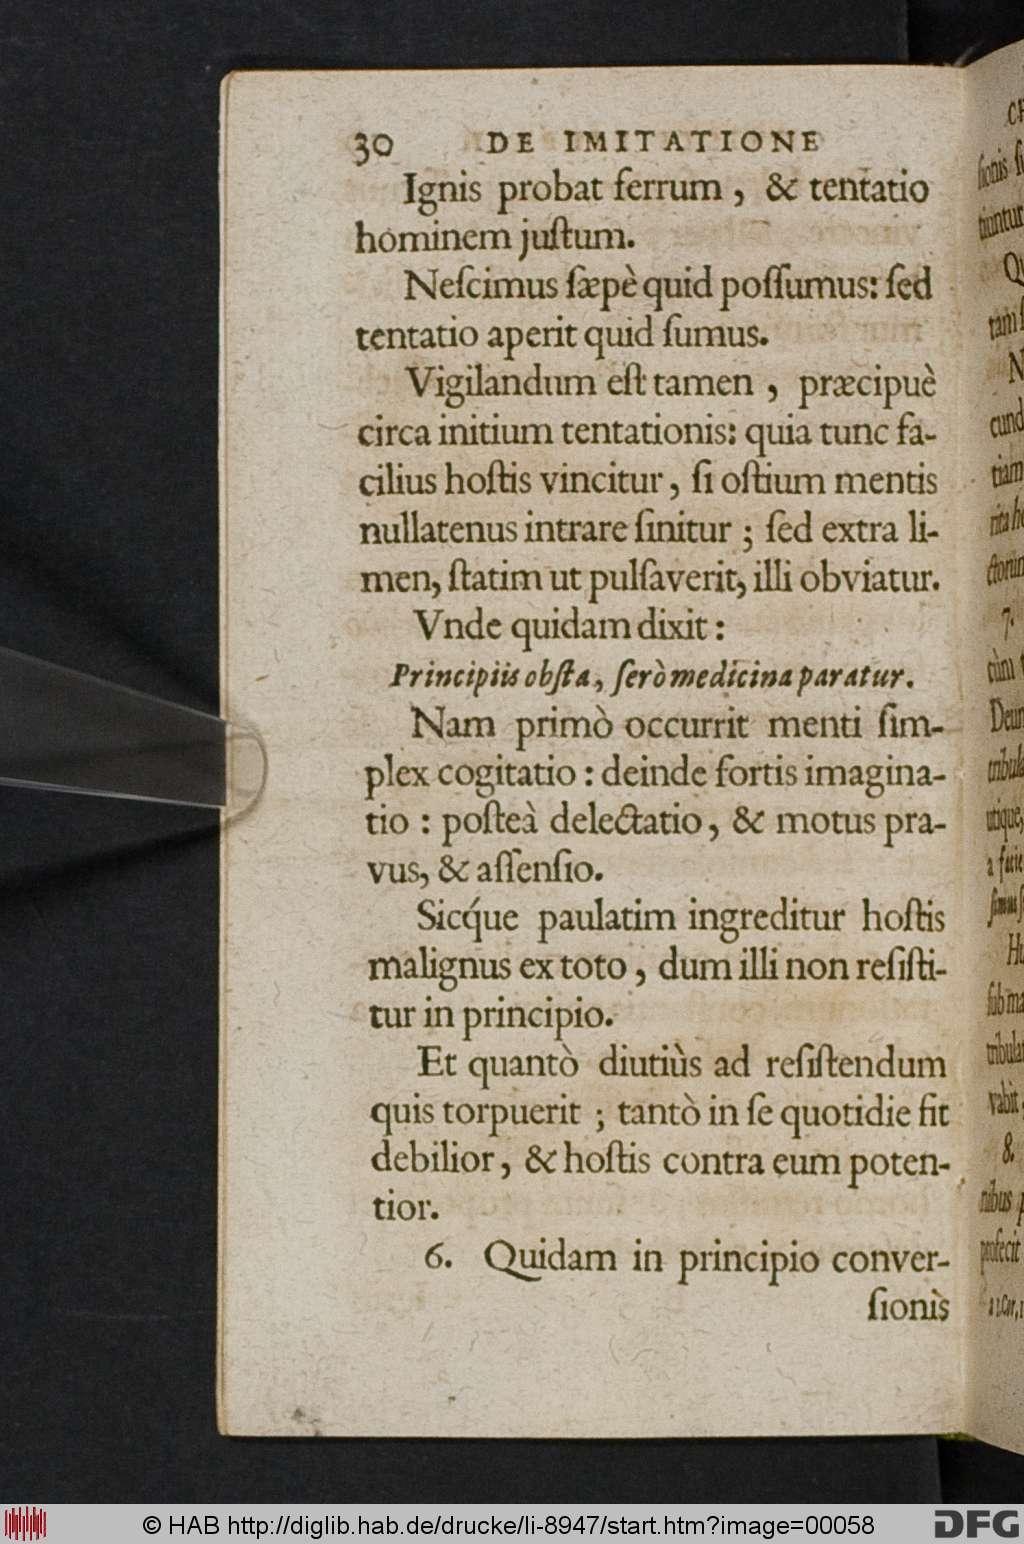 30 DE IMITATIONE
Ignis probat ferrum, & tentatio
hominem juſtum.
Neſcimus ſæpè quid poſſumus: ſed
tentatio aperit quid ſumus.
Vigilandum eſt tamen, præcipuè
circa initium tentationis: quia tunc fa-
cilius hoſtis vincitur, ſi oſtium mentis
nullatenus intrare ſinitur; ſed extra li-
men, ſtatim ut pulſaverit, illi obviatur.
Vnde quidam dixit:
Principiis obſta, ſerò medicina paratur.
Nam primò occurrit menti ſim-
plex cogitatio: deinde fortis imagina-
tio: poſteà delectatio, & motus pra-
vus, & aſſenſio.
Sicq́ue paulatim ingreditur hoſtis
malignus ex toto, dum illi non reſiſti-
tur in principio.
Et quantò diutiùs ad reſiſtendum
quis torpuerit; tantò in ſe quotidie fit
debilior, & hoſtis contra eum poten-
tior.
6. Quidam in principio conver-
ſionis
© HAB http://diglib.hab.de/drucke/li-8947/start.htm?image=00058
DFG